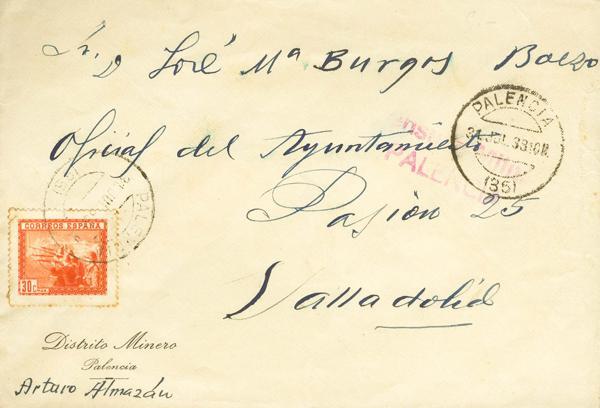 Sr. D José Mª Burgos Boezo
Oficial del Ayuntamiento
Pasión 25
Valladolid
PALENCIA
31 JUL 38 10M
(35)
PALENCIA
PALENCIA
CORREOS ESPAÑA
30 Cts
Distrito Minero
Palencia
Arturo Almazán